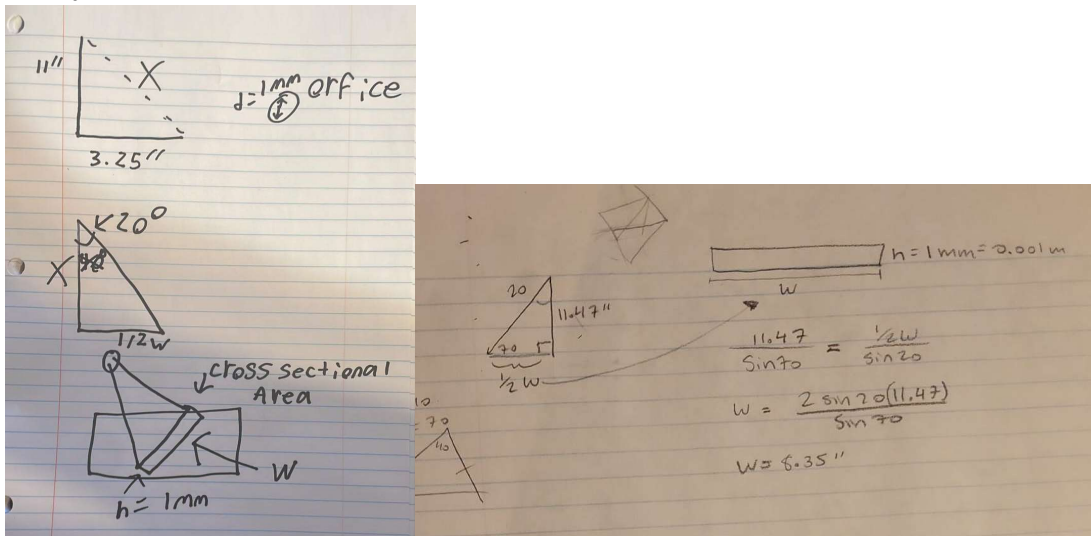 11"
X
d=1mm orfice
3.25"
20°
X
1/2W
cross sectional
Area
W
h= 1mm
20
11.47"
70
1/2 W
h=1mm=0.001m
W
11.47 / Sin70 = 1/2W / sin20
W = 2 sin20(11.47) / Sin70
W= 8.35"
10
= 70
40